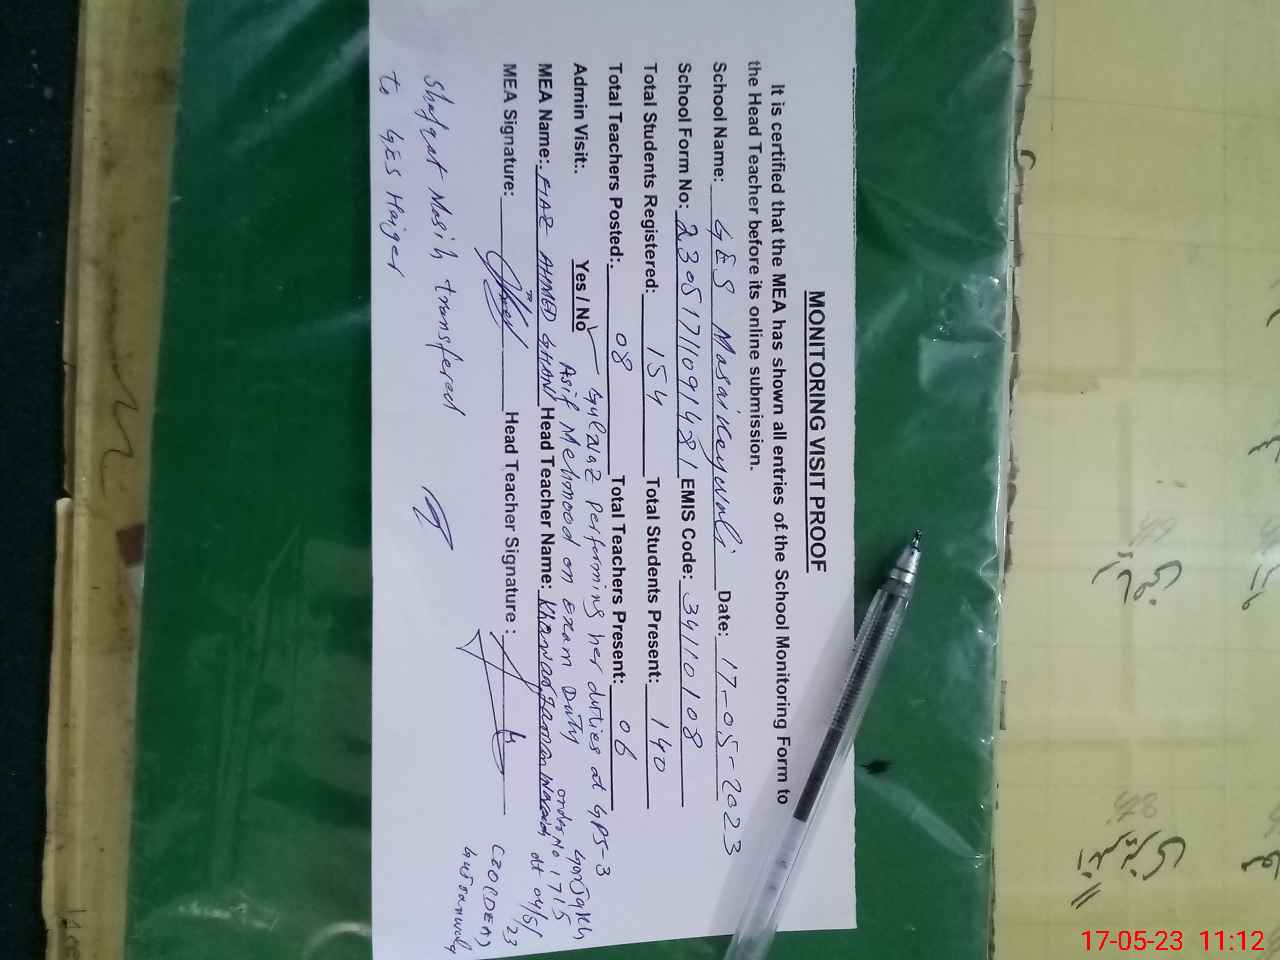 MONITORING VISIT PROOF
It is certified that the MEA has shown all entries of the School Monitoring Form to
the Head Teacher before its online submission.
School Name: GES Masaikeywali Date: 17-05-2023
School Form No: 2305171109148 1 EMIS Code: 34110108
Total Students Registered: 154 Total Students Present: 140
Total Teachers Posted:. 08 Total Teachers Present: 06
Admin Visit:. Yes / No
Gulnaz Performing her duties at GPS-3
Asif Mehmood on Exam Duty order No 1715 dt 04/5/23
CEO(DEA)
MEA Name:. FIAZ AHMED GHANI Head Teacher Name:
MEA Signature: Head Teacher Signature :
Shafqat Masih transfered
to GES Haiger
17-05-23 11:12